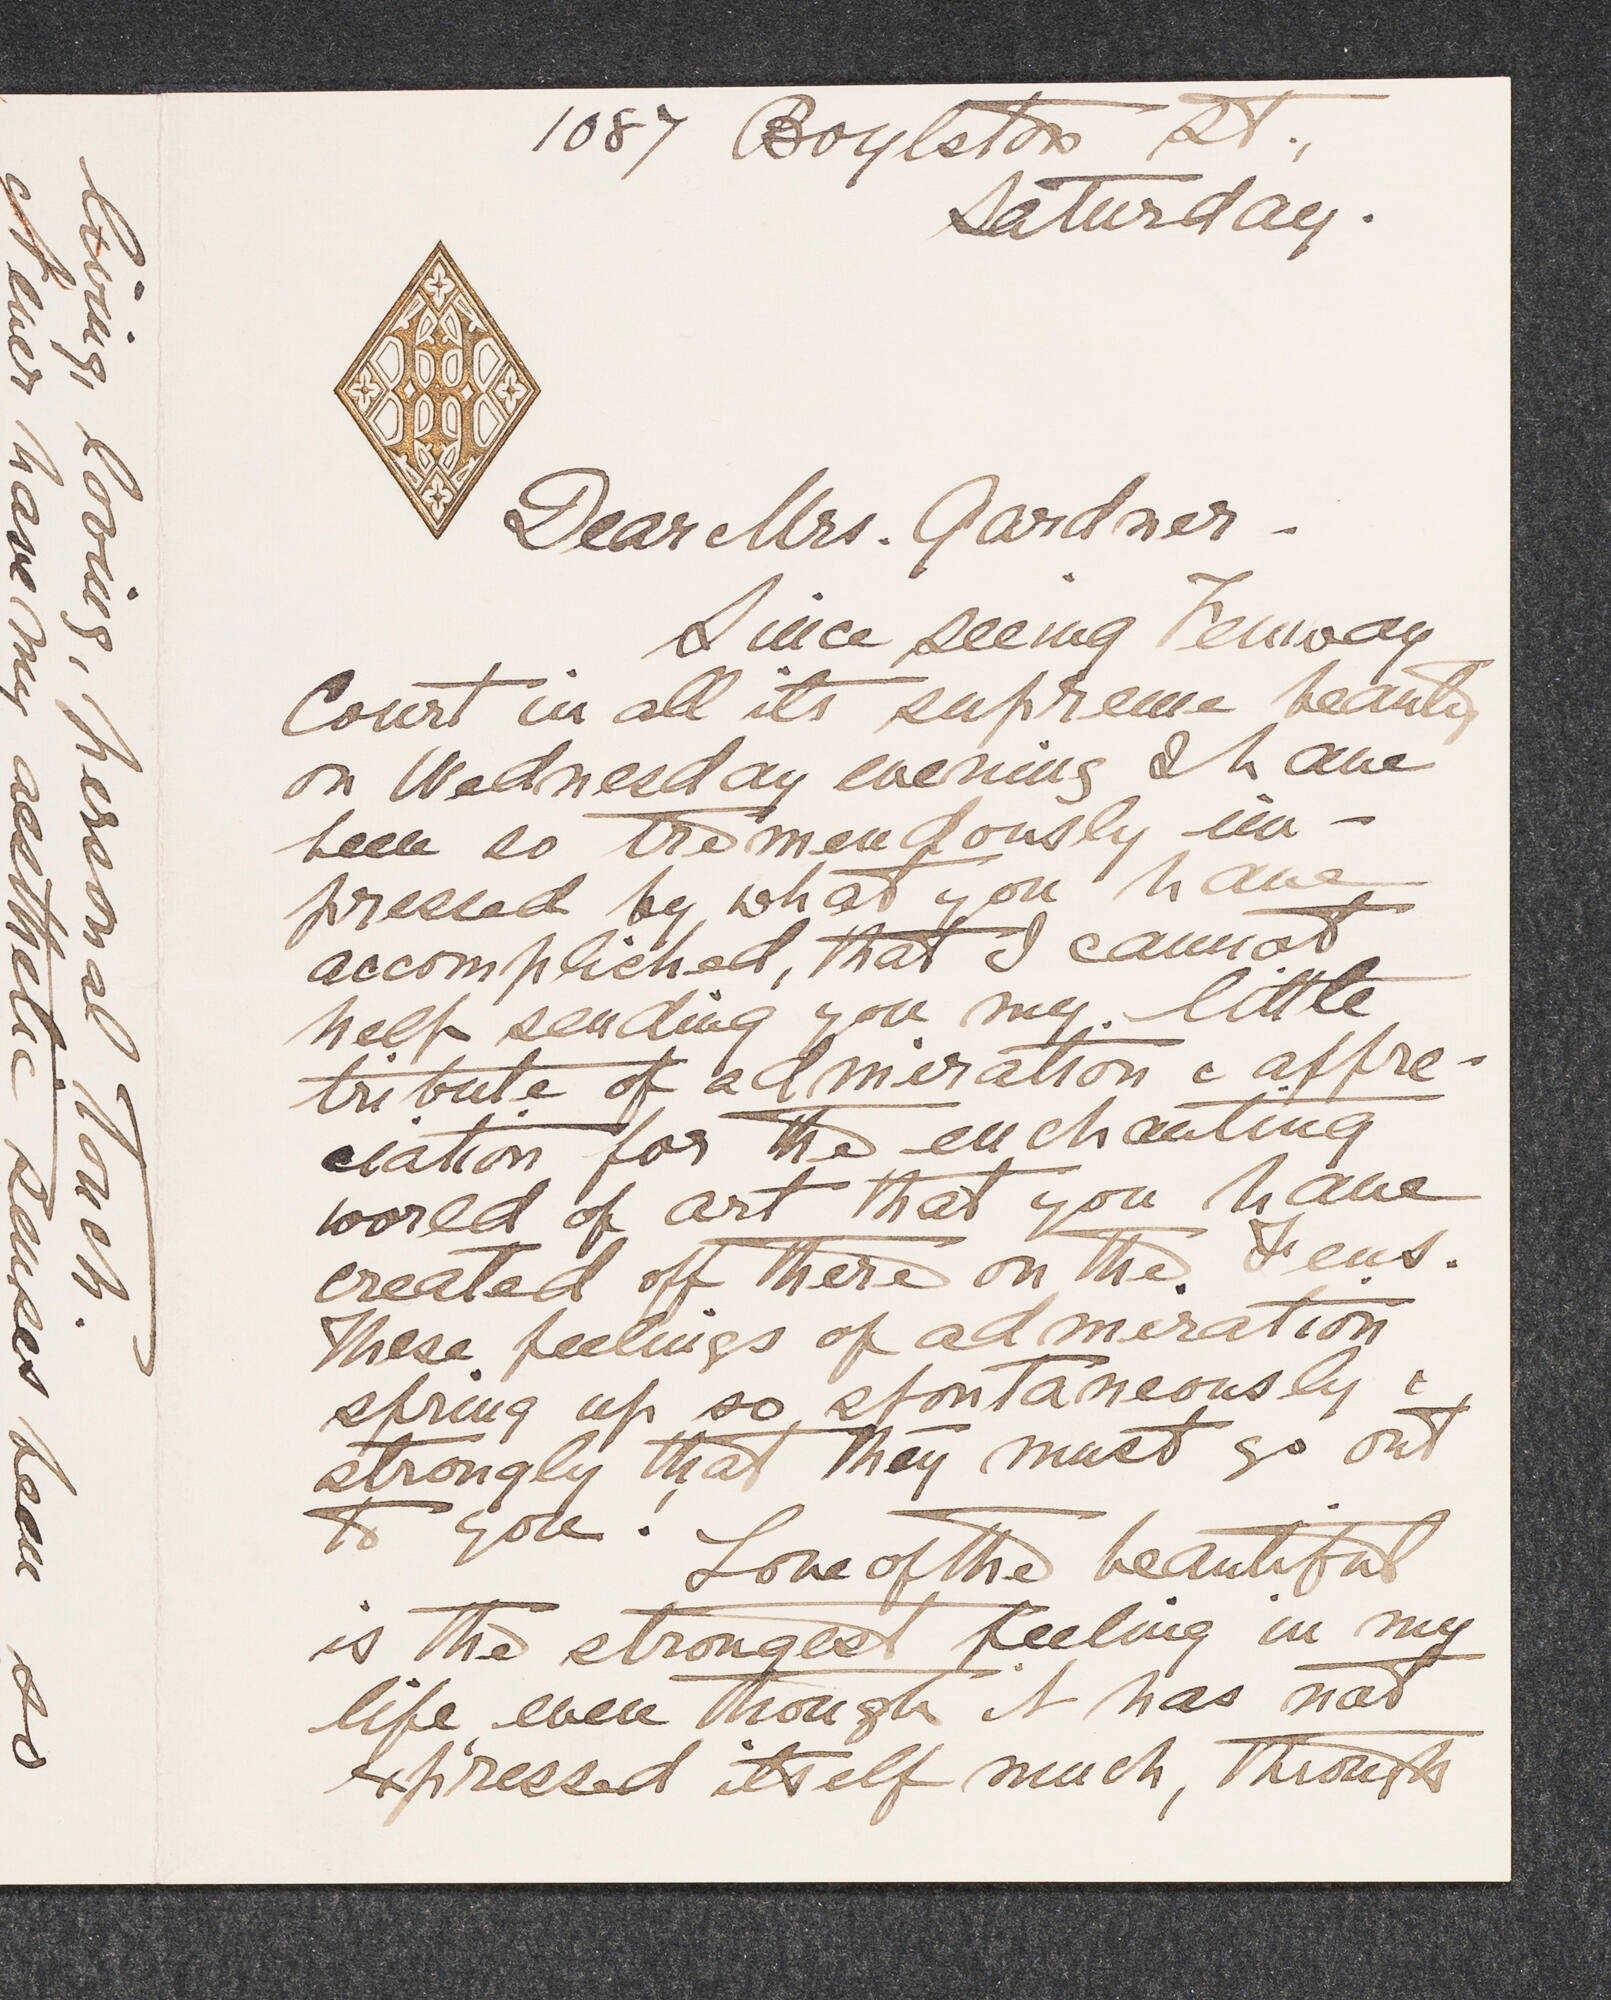 1087 Boylston St.,
Saturday.
H
Dear Mrs. Gardner -
Since seeing Fenway
Court in all its supreme beauty
on Wednesday evening I have
been so tremendously im-
pressed by what you have
accomplished, that I cannot
help sending you my little
tribute of admiration & appre-
ciation for the enchanting
world of art that you have
created off there on the Fens.
These feelings of admiration
spring up so spontaneously &
strongly that they must go out
to you!
Love of the beautiful
is the strongest feeling in my
life even though it has not
expressed itself much, through
living, loving, personal touch.
Never have my aesthetic senses been so